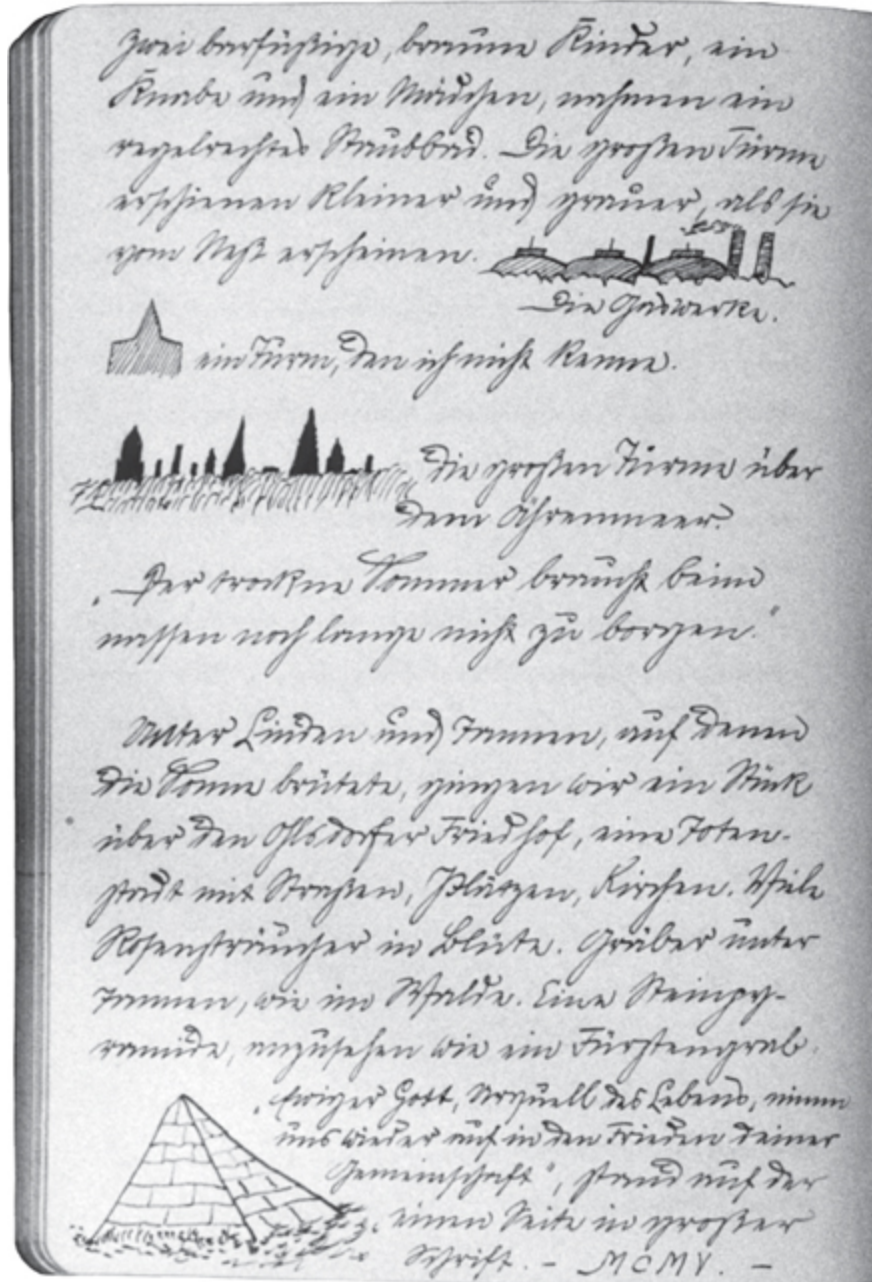 Zwei barfüßige, braune Kinder, ein
Knabe und ein Mädchen, nahmen ein
regelrechtes Staubbad. Die großen Türme
erschienen kleiner und grauer, als sie
vom erscheinen.
Die Gaswerke.
ein Turm, den ich nicht kenne.
Die großen Türme über
dem Ährenmeer.
"Der trockne Sommer braucht beim
nassen noch lange nicht zu borgen."
Unter Linden und Tannen, auf denen
die Sonne brütete, gingen wir ein Stück
über den Ohlsdorfer Friedhof, eine Toten-
stadt mit Straßen, Plätzen, Kirchen. Viele
Rosensträucher in Blüte. Gräber unter
Tannen, wie im Walde. Eine Steinpy-
ramide, anzusehen wie ein Fürstengrab.
"Ewiger Gott, Urquell des Lebens, nimm
uns wieder auf in den Frieden deiner
Gemeinschaft", stand auf der
einen Seite in großer
Schrift. - MCMV. -